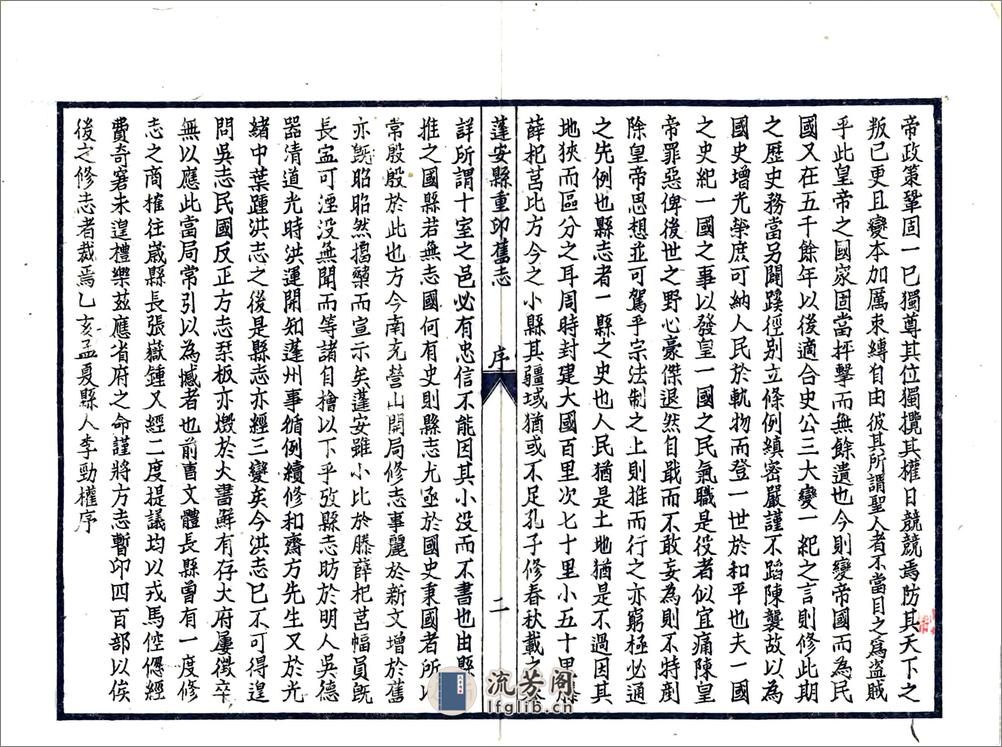 帝政策鞏固一己獨尊其位獨攬其權日競競焉防其天下之
叛己更且變本加厲束縛自由彼其所謂聖人者不當目之爲盜賊
乎此皇帝之國家固當抨擊而無餘遺也今則變帝國而為民
國又在五千餘年以後適合史公三大變一紀之言則修此期
之歷史務當另闢蹊徑別立條例縝密嚴謹不蹈陳襲故以為
國史增光榮庶可納人民於軌物而登一世於和平也夫一國
之史紀一國之事以發皇一國之民氣職是役者似宜痛陳皇
帝罪惡俾後世之野心豪傑退然自戢而不敢妄為則不特剷
除皇帝思想並可駕乎宗法制之上則推而行之亦窮極必通
之先例也縣志者一縣之史也人民猶是土地猶是不過因其
地狹而區分之耳周時封建大國百里次七十里小五十里
薛杞莒比方今之小縣其疆域猶或不足孔子修春秋載之
蓬安縣重印舊志 序 二
詳所謂十室之邑必有忠信不能因其小没而不書也由縣
推之國縣若無志國何有史則縣志尤亟於國史秉國者所以
常殷殷於此也方今南充營山開局修志事麗於新文增於舊
亦旣昭昭然擂鼜而宣示矣蓬安雖小比於滕薛杞莒幅員旣
長寍可湮没無聞而等諸自檜以下乎攷縣志昉於明人吳德
器清道光時洪運開知蓬州事循例續修和齋方先生又於光
緒中葉踵洪志之後是縣志亦經三變矣今洪志已不可得遑
問吳志民國反正方志栞板亦燬於大書鮮有存大府屢徵卒
無以應此當局常引以為憾者也前曹文體長縣曾有一度修
志之商榷往歲縣長張嶽鍾又經二度提議均以戎馬倥傯經
費奇窘未遑禮樂茲應省府之命謹將方志暫印四百部以俟
後之修志者裁焉乙亥孟夏縣人李勁權序
流芳閣
lfglib.cn